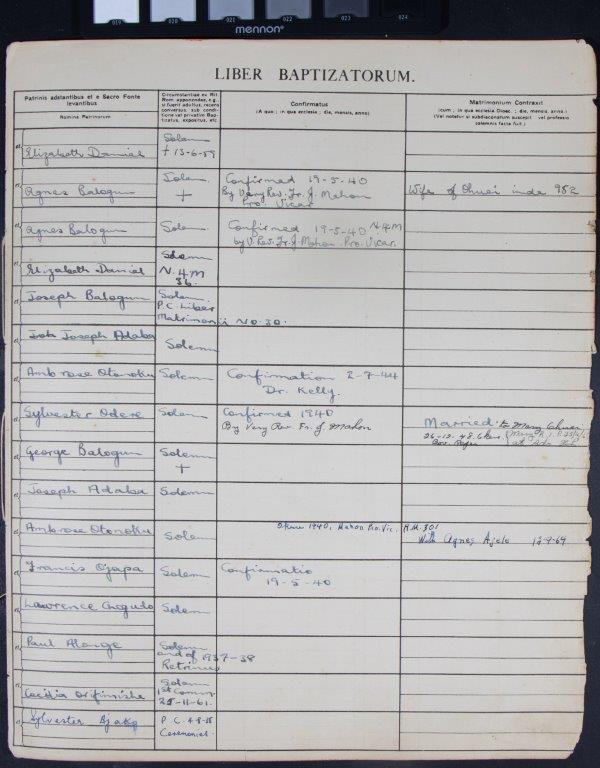 019 020 021 022 023 024
mennon
LIBER BAPTIZATORUM.
Patrinis adstantibus et e Sacro Fonte
levantibus
Nomina Patrinorum
Circumstantiae ex Rit.
Rom. apponendae, e.g.,
si fuerit adultus, recens
conversus, sub condi-
tione vel privatim Bap-
tizatus, expositus, etc.
Confirmatus
(A quo; in qua ecclesia; die, mensis, anno)
Matrimonium Contraxit
(cum; in qua ecclesia Diosc.; die, mensis, anno.)
(Vel notetur si subdiaconatum suscepit vel professio
solemnis facta fuit.)
Elizabeth Danial
Solem
+ 13-6-59
Agnes Balogun
Solem
+
Confirmed 19-5-40
By Very Rev. Fr. J. Mahon
Pro. Vicar
Wife of
982
Agnes Balogun
Solem
Confirmed 19-5-40 N.4M
by V. Rev. Fr. J. Mahon. Pro. Vicar.
Elizabeth Danial
Solem
N. 4M
36.
Joseph Balogun
Solem
P.C. Liber
Matrimonii No. 30.
Joseph Adaba
Solemn
Ambrose Otonoku
Solemn
Confirmation 2-7-44
Dr. Kelly.
Sylvester Odere
Solem
Confirmed 1940
By Very Rev Fr. J. Mahon
Married to Mary
26-12-48
George Balogun
Solemn
+
Joseph Adaba
Solemn
Ambrose Otonoku
Solem
1940, Mahon Pro. Vic. H.M. 301
With Agnes Ajelo 12-9-69
Francis Ojapa
Solemn
Confirmatio
19-5-40
Lawrence
Solemn
Paul Alonge
Solemn
end of 1937-38
Cecilia Orifimishe
Solemn
1st Comm.
25-11-61.
Sylvester Ajako
P.C. 4-8-18
Ceremonies.